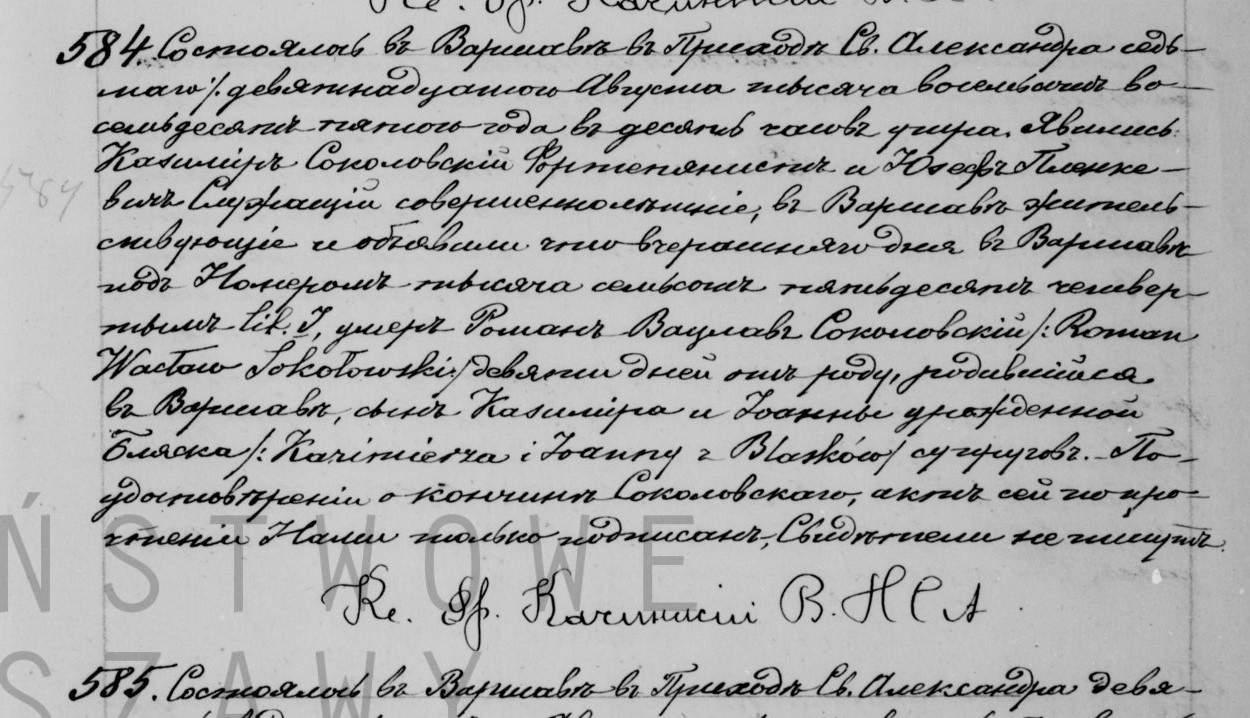 Кс. Фр. Качинскій В. Н С А
584. Состоялось въ Варшавѣ въ Приходѣ Св. Александра седь-
маго /: девятнадцатого Августа тысяча восемьсотъ во-
семьдесятъ пятого года въ десять часовъ утра. Явились
Казимѣръ Соколовскій Фортепянистъ и Юзефъ Пленке-
вичъ Служащій совершеннолѣтніе, въ Варшавѣ житель-
ствующіе и объявили что вчерашняго дня въ Варшавѣ
подъ Номеромъ тысяча семьсотъ пятьдесятъ четвер-
тымъ lit. J, умеръ Романъ Вацлавъ Соколовскій /: Roman
Wacław Sokołowski :/ девяти дней отъ роду, родившійся
въ Варшавѣ, сынъ Казимѣра и Іоанны урожденной
Бляска /: Kazimierza i Joanny z Blasków / супруговъ. По
удостовѣреніи о кончинѣ Соколовскаго, актъ сей по про-
чтеніи Нами только подписанъ, Свидѣтели не пишутъ.
Кс. Фр. Качинскій В. Н С А
585. Состоялось въ Варшавѣ въ Приходѣ Св. Александра девя-
584
ŃSTWOWE
SZAWY